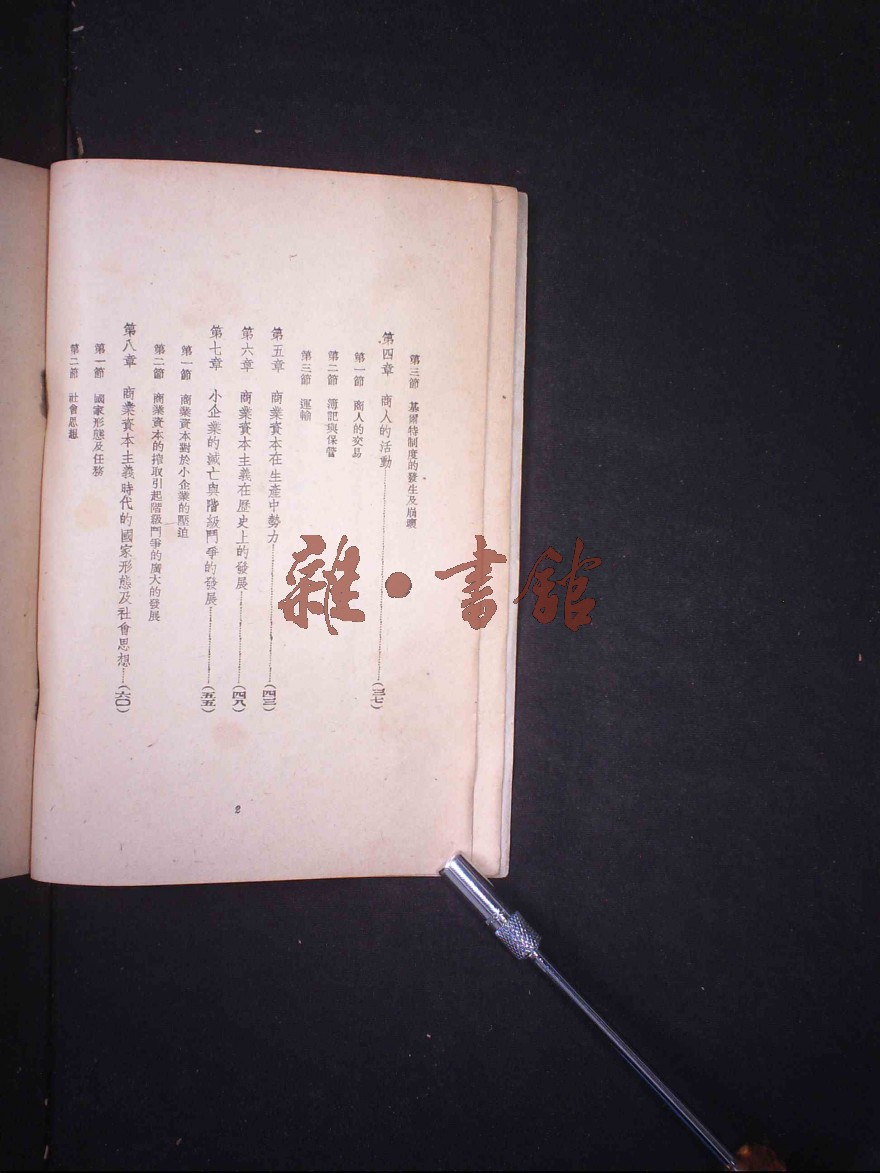 第三節　基爾特制度的發生及崩壞
第四章　商人的活動……(三七)
第一節　商人的交易
第二節　簿記與保管
第三節　運輸
第五章　商業資本在生產中勢力……(四三)
第六章　商業資本主義在歷史上的發展……(四八)
第七章　小企業的滅亡與階級鬥爭的發展……(五五)
第一節　商業資本對於小企業的壓迫
第二節　商業資本的搾取引起階級鬥爭的廣大的發展
第八章　商業資本主義時代的國家形態及社會思想…(六〇)
第一節　國家形態及任務
第二節　社會思想
2
雜・書館